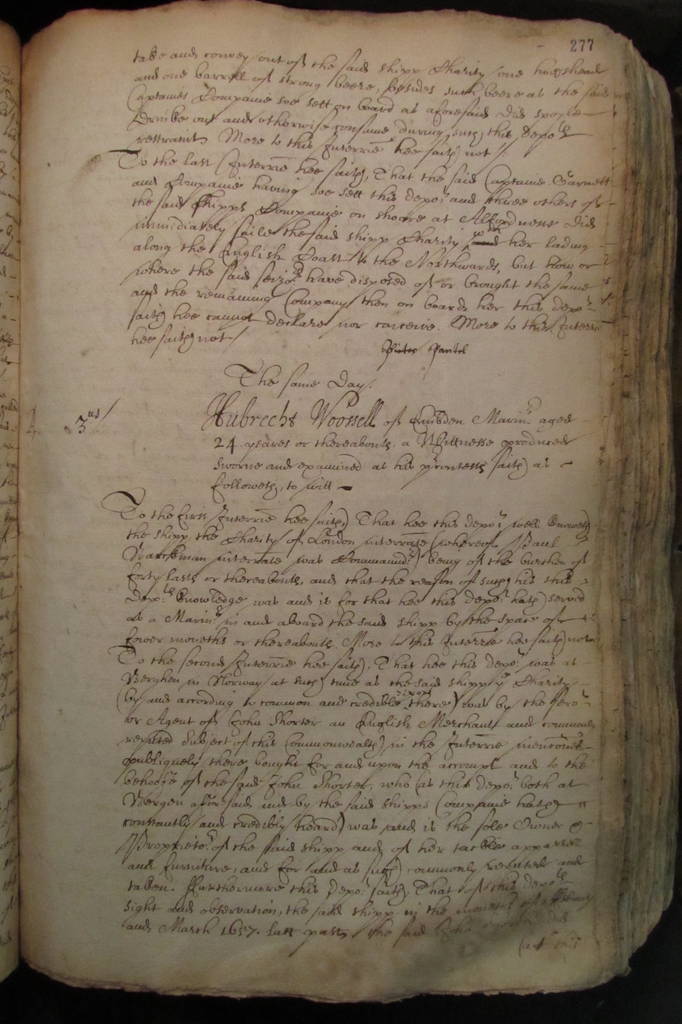 277
take and convey out of the said shipp Charity one hogshead
and one barrell of strong beere, besides such beere as the said
Captaines Companie soe sett on board as aforesaid did spoyle
drinke out and otherwise consume during such this depots
restraint. More to this Interrie hee saith not./
To the last Interrie hee saith, That the said Captaine Barnett
and Companie having soe sett this depot and three others of
the said shipps Companie on shoare at Alfordnesse did
immediately saile the said shipp Charity with her lading
along the English Coast to the Northwards, but how or
where the said seizors have disposed of or brought the same
and the remaining Company then on board her this depot
saith hee cannot declare nor conceive. More to this Interrie
hee saith not./
The same day./
3us/
Hubrecht Woossell of Emden Marinr aged
24 yeares or thereabouts a Wittnesse produced
sworne and examined at his saith as
followeth, to witt
To the first Interrie hee saith, That hee this depot well knoweth
the shipp the Charity of London interrate whereof Paul
interrate was Commandr being of the burthen of
forty lasts or thereabouts, and that the reason of such his this
depots knowledge was and is for that hee this depot hath served
as a Marinr in and aboard the said shipp by the space of
fower moneths or thereabouts. More to this Interrie hee saith not
To the second Interrie hee saith, That hee this depot was at
Berghen in Norway at such time as the said shipp Charity
(by and according to common and credible there) was by the
or Agent of John Shorter an English Merchant and commonly
reputed Subject of this Commonwealth in the Interrie mentiond
publiquely there bought for and upon the accompt and to the
behoofe of the said John Shorter, who (as this depot both at
Bergen aforesaid and by the said shipps Companie hath
constantly and credibly heard) was and is the sole Owner &
Proprietor of the said shipp and of her tackle apparell
and furniture, and for (and as such) commonly reputed and
taken. Furthermore this depot saith, That of this depots
sight and observation, the said shipp in the moneths of
and March 1657. last past, the said